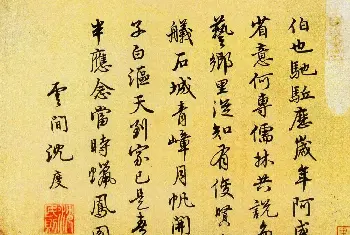 伯也馳駈應歲年阿咸
省意何專儒林共説多
藝鄉里從知有俊賢
艤石城青嶂月帆開
子白漚天到家已是春
半應念當時蠟鳳圓
雲間沈度